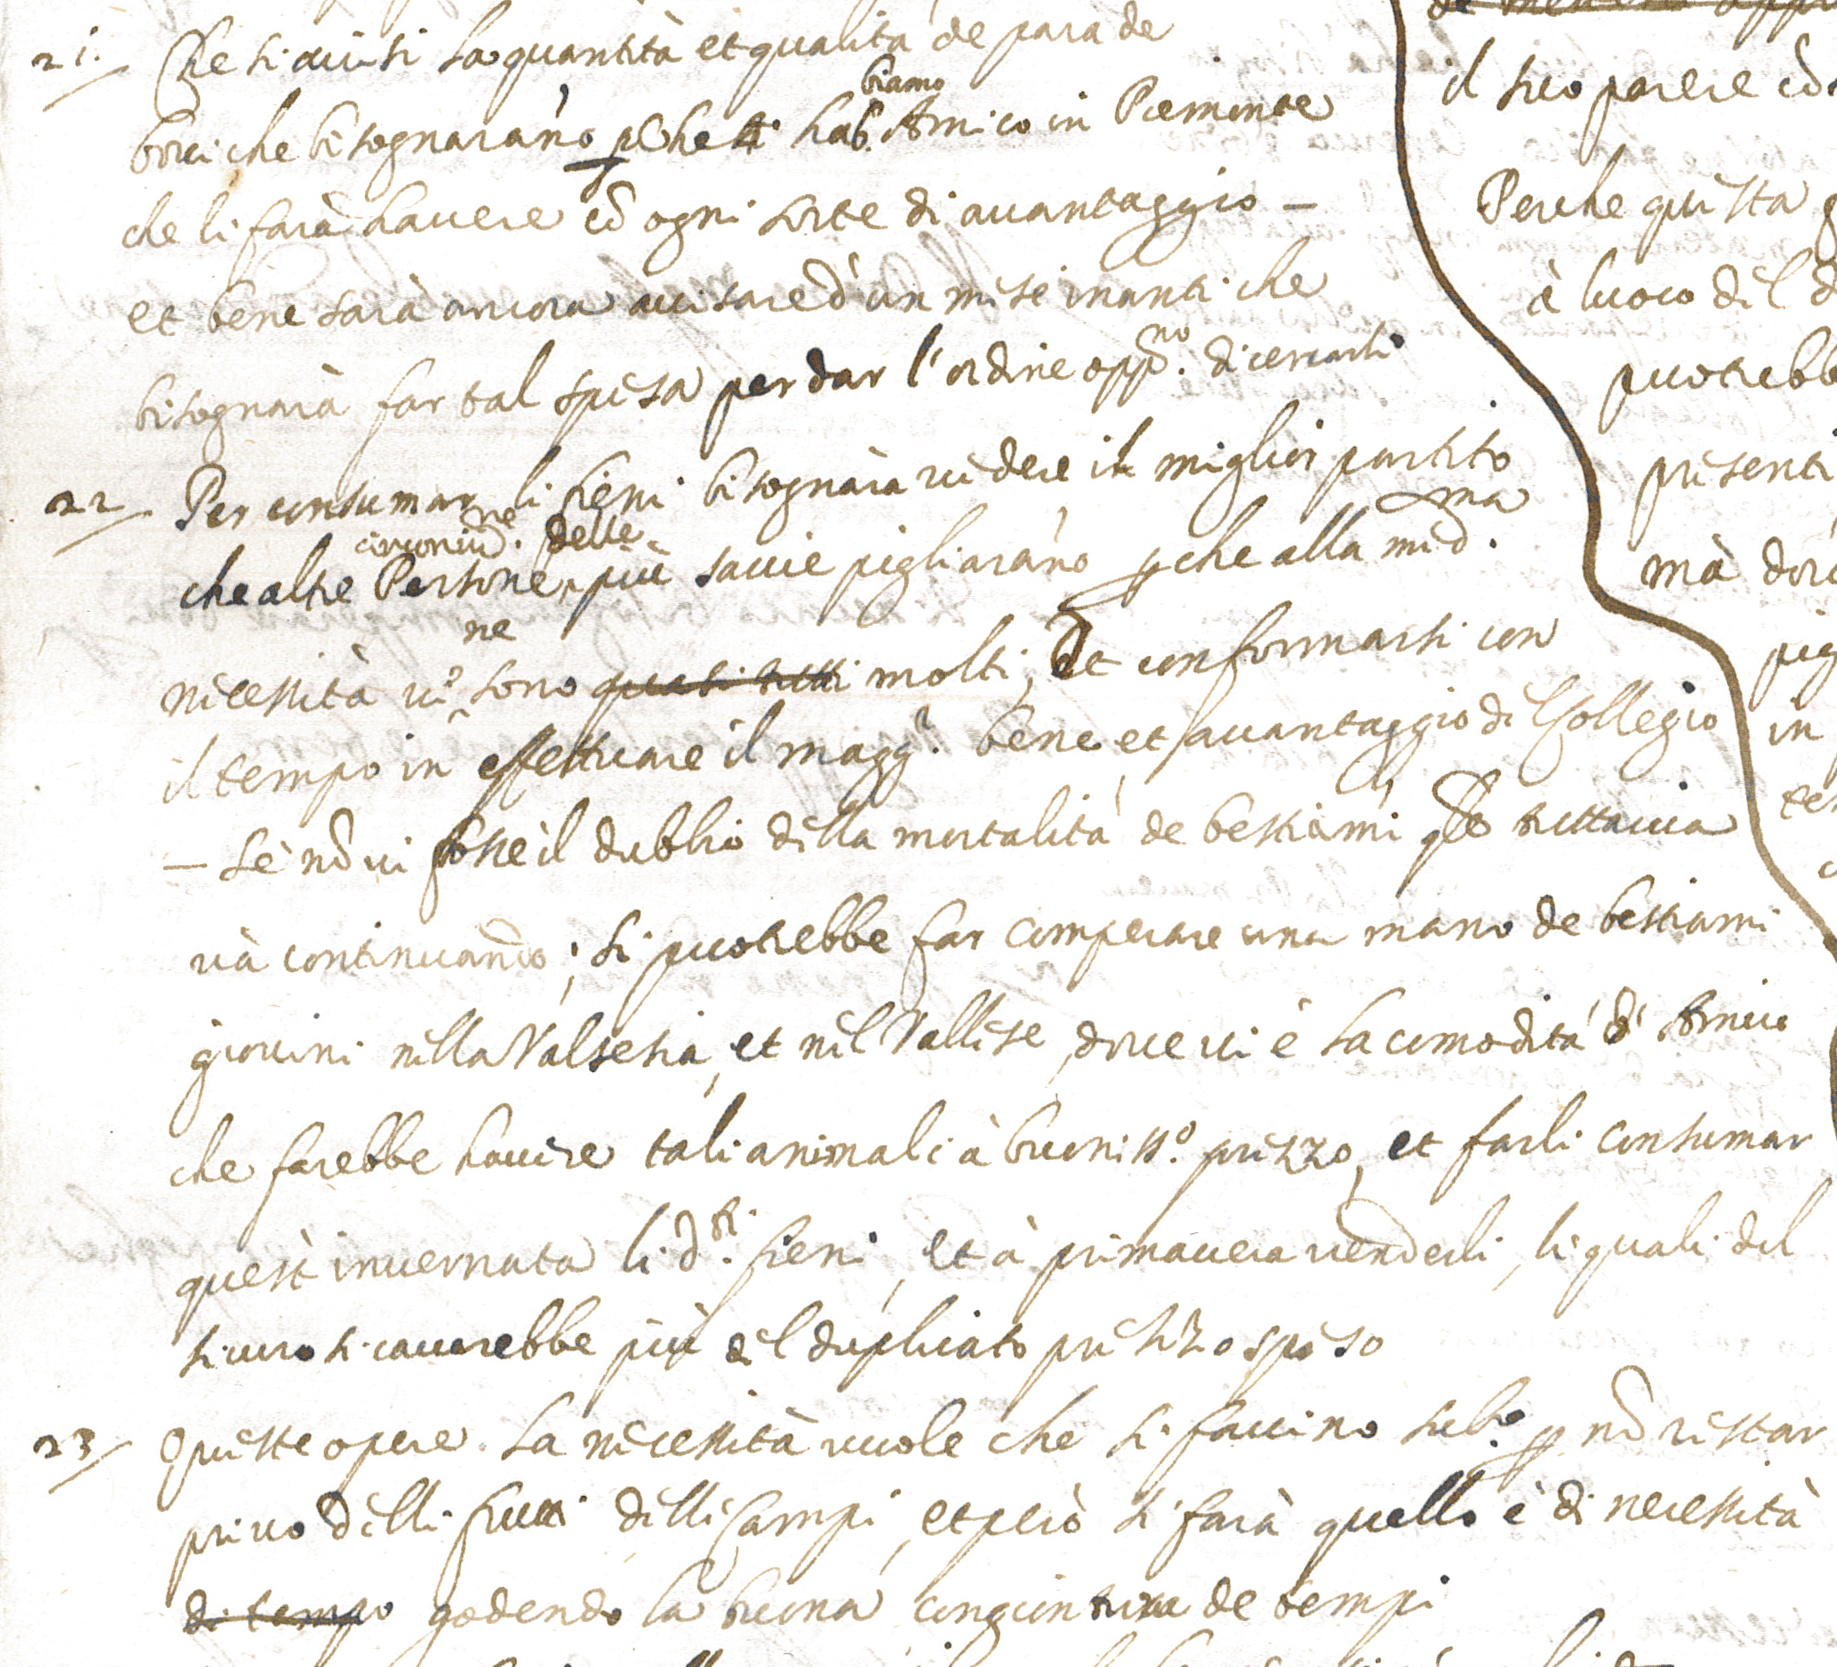 21. Che si avisi la quantità et qualità de para de
bovi che bisognarano, perche hab.biamo Amico in Piemonte
che li farà havere cõ ogni sorte di avantaggio —
et bene sarà ancora avisare d'un mese inanti che
bisognarà far tal spesa per dar l'ordine opp.no di cercarli
22 Per consumar li fieni bisognarà vedere il miglior partito
circonvic.ne delle
che altre Persone più savie pigliarano perche alla med.ma
ne
necessità vi sono quasi tutti molti, et conformarsi con
il tempo in effettuare il magg.r bene et avantaggio dil Collegio
— se nõ vi fosse il dubbio della mortalità de bestiami qle tuttavia
và continuando; si puotrebbe far comperare una mano de bestiami
giovini nella Valsesia, et nel Vallese, dove vi è la comodità d'Amico
che farebbe havere tali animali à buoniss.o prezzo, et farli consumar
quest invernata li d.ti fieni, et à primavera venderli, li quali del
sicuro si cavarebbe più del duplicato prezzo speso
23 Queste opere la necessità vuole che si faccino sub.o per nõ restar
privo delli frutti delli Campi, et però si farà quello è di necessità
di tempo godendo la buona congiontura de tempi
il suo parere cõ
Perche questa
à luoco del
puotrebb
presenti
mà
pig
in